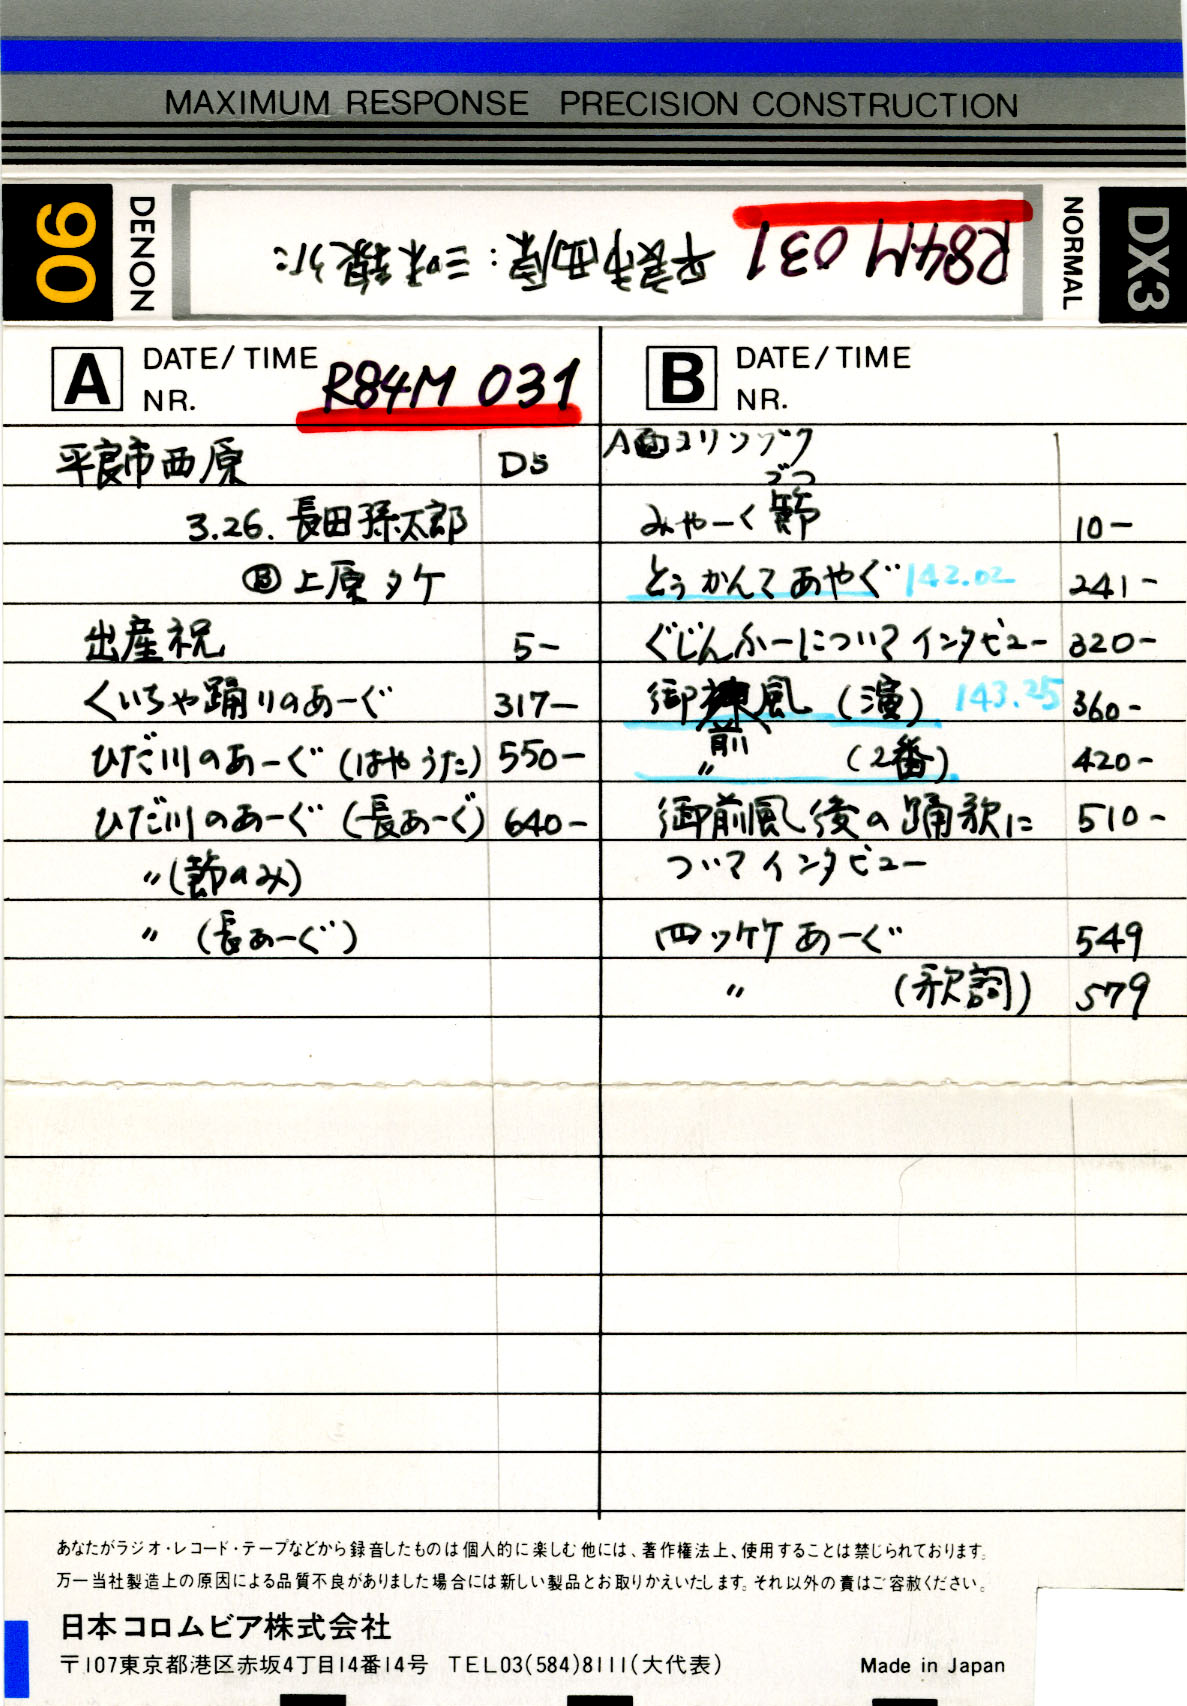 MAXIMUM RESPONSE PRECISION CONSTRUCTION
90
DENON
R84M 031 平良市西原:三味線うた
NORMAL
DX3
A
DATE/TIME
NR.
R84M 031
平良市西原 D5
3.26. 長田孫太郎
上原タケ
出産祝 5-
くいちゃ踊りのあーぐ 317-
ひだ川のあーぐ (はやうた) 550-
ひだ川のあーぐ (長あーぐ) 640-
〃(節のみ)
〃 (長あーぐ)
B
DATE/TIME
NR.
A面ヨリツヅク
づつ
みやーく節 10-
とぅかんてあやぐ 142.02 241-
ぐじんふーについてインタビュー 320-
御前風 (演) 143.25 360-
〃 (2番) 420-
御前風後の踊歌に 510-
ついてインタビュー
四ッ竹あーぐ 549
〃 (歌詞) 579
あなたがラジオ・レコード・テープなどから録音したものは個人的に楽しむ他には、著作権法上、使用することは禁じられております。
万一当社製造上の原因による品質不良がありました場合には新しい製品とお取りかえいたします。それ以外の責はご容赦ください。
日本コロムビア株式会社
〒107東京都港区赤坂4丁目14番14号 TEL03(584)8111(大代表)
Made in Japan